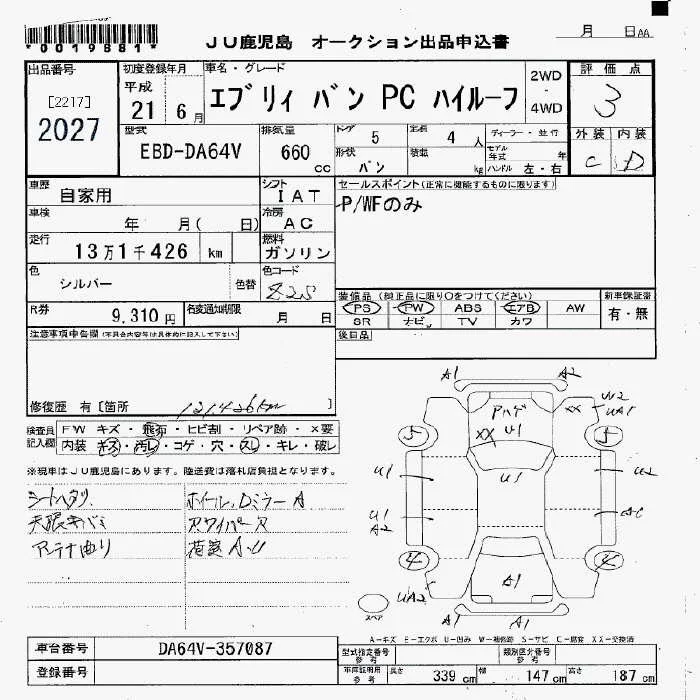 *0019881*
JU鹿児島 オークション出品申込書
月 日 AA
出品番号
[2217]
2027
初度登録年月
平成
21 6月
車名・グレード
エブリィ バン PC ハイルーフ
2WD
・
4WD
評価点
3
外装 内装
C D
型式
EBD-DA64V
排気量
660 cc
ドア 5
定員 4 人
形状 バン
積載 kg
ディーラー・並行
モデル年式 年
ハンドル 左・右
車歴
自家用
シフト
IAT
セールスポイント(正常に機能するものに限ります)
P/WFのみ
車検
年 月( 日)
冷房
AC
走行
13万1千426 km
燃料
ガソリン
色
シルバー
色替
色コード
Z2S
装備品(純正品に限り○をつけてください)
新車保証書
PS PW ABS エアB AW
有・無
SR ナビ TV カワ
R券
9,310円
名変通知期限
月 日
後日品
注意事項申告欄(不具合内容等は具体的に記入して下さい)
修復歴 有〔箇所 〕
131,426km
検査員記入欄
FW キズ・飛石・ヒビ割・リペア跡・×要
内装 キズ・汚レ・コゲ・穴・スレ・キレ・破レ
※現車はJU鹿児島にあります。陸送費は落札店負担となります。
シートハタリ、
天張キバミ
アンテナ曲り
ホイール、Dミラー A
Rワイパー ヌ
荷室 A.U
A1 A2
Pハゲ
XX U1
XX U2
UA1
5 5
U1 U1 U2
U1
A2
AC
4 4
UA2
A1
A1 A1
スペア
A-キズ E-エクボ U-凹み W-補修跡 S-サビ C-腐食 XX-交換済
車台番号
DA64V-357087
登録番号
型式指定番号
参考
類別区分番号
参考
車庫証明用
参考
長さ 339 cm
幅 147 cm
高さ 187 cm